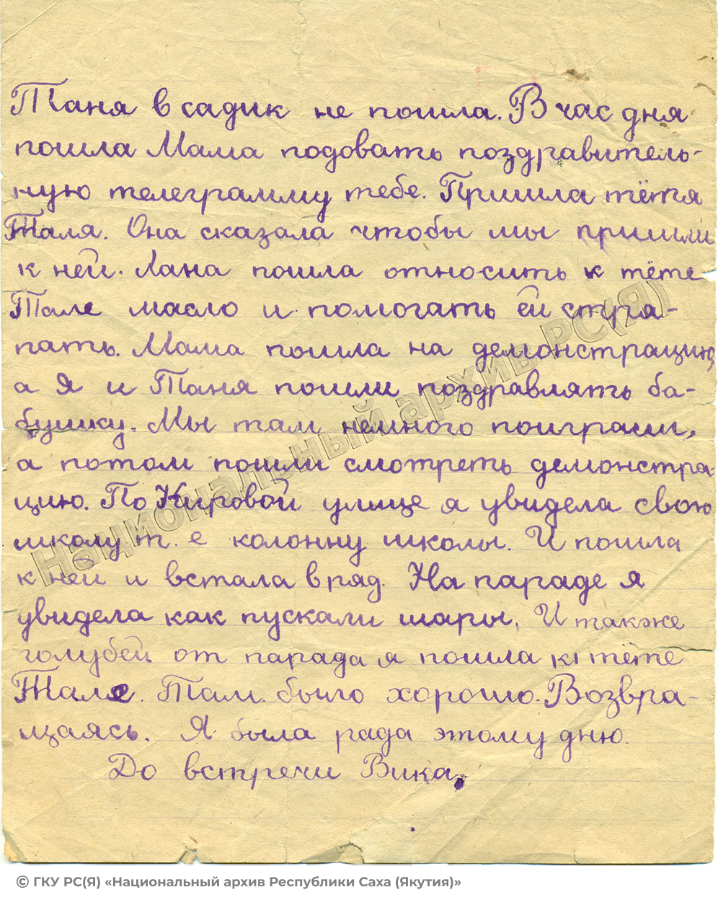 Таня в садик не пошла. В час дня
пошла Мама подовать поздравитель-
ную телеграмму тебе. Пришла тётя
Таля. Она сказала чтобы мы пришли
к ней. Лана пошла относить к тёте
Тале масло и помогать ей стря-
пать. Мама пошла на демонстрацию,
а я и Таня пошли поздравлять ба-
бушку. Мы там немного поиграли,
а потом пошли смотреть демонстра-
цию. По Кировой улице я увидела свою
школу т. е колонну школы. И пошла
к ней и встала в ряд. На параде я
увидела как пускали шары. И также
голубей от парада я пошла к тёте
Тале. Там было хорошо. Возвра-
щаясь. Я была рада этому дню.
До встречи Вика.
Национальный архив РС(Я)
© ГКУ РС(Я) «Национальный архив Республики Саха (Якутия)»